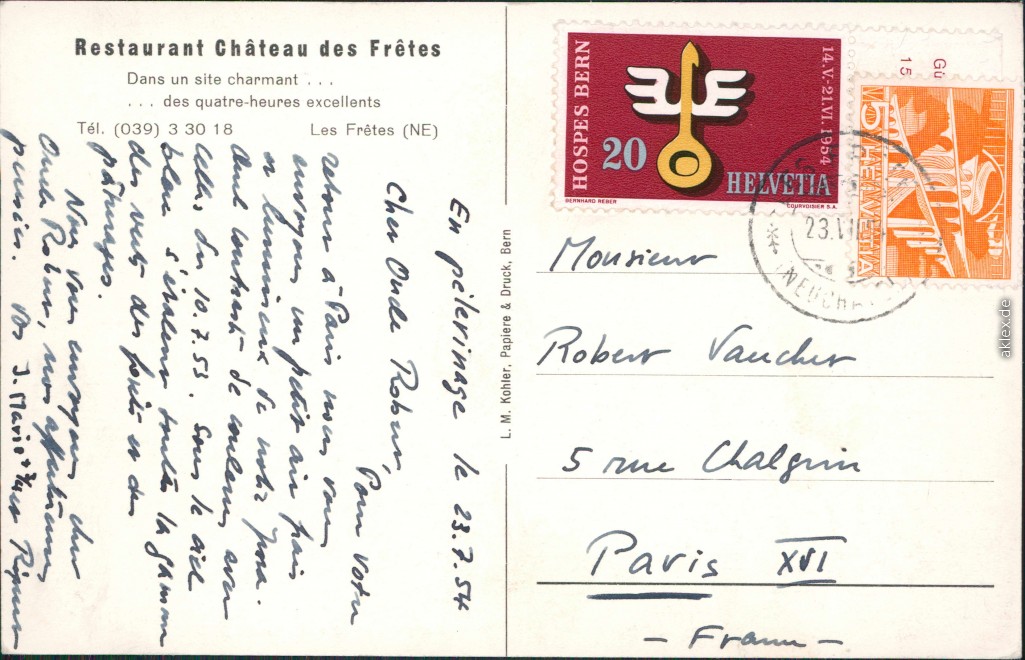 Restaurant Château des Frêtes
Dans un site charmant . . .
. . . des quatre-heures excellents
Tél. (039) 3 30 18 Les Frêtes (NE)
En pèlerinage le 23.7.54
Cher Oncle Robert,
Pour votre
retour à Paris nous vous
envoyons un petit air frais
et lumineux de notre Jura.
Quel contraste de couleurs avec
celles du 10.7.53. Sous le ciel
bleu s'étalent toute la gamme
des verts des forêts et des
pâturages.
Nous vous envoyons, cher
Oncle Robert, nos affectueuses
pensées. Vos J. Marie
L. M. Kohler, Papiere & Druck, Bern
HOSPES BERN
14.V.-21.VI.1954
20
HELVETIA
BERNHARD REBER COURVOISIER S.A.
5 HELVETIA
23.VII
(NEUCHA
Monsieur
Robert Vaucher
5 rue Chalgrin
Paris XVI
- France -
aklex.de